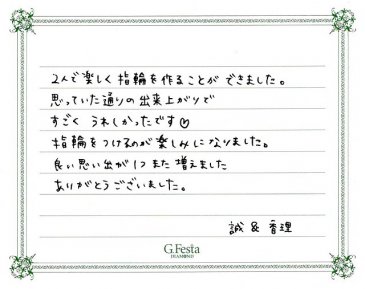 2人で楽しく指輪を作ることができました。
思っていた通りの出来上がりで
すごくうれしかったです♡
指輪をつけるのが楽しみになりました。
良い思い出が1つまた増えました
ありがとうございました。
誠 & 香理
G.Festa
DIAMOND